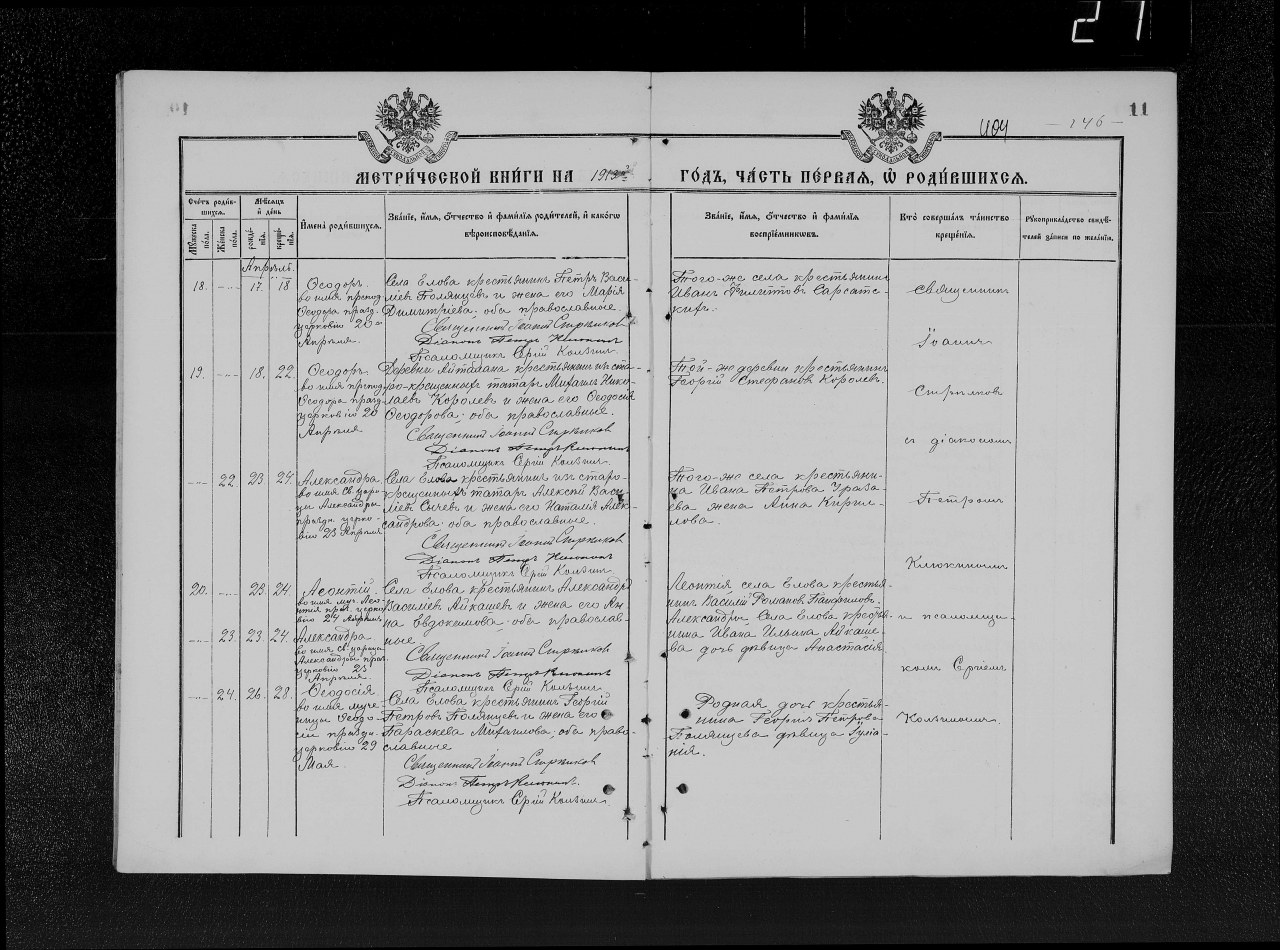 21
11
404
— 146 —
Метри́ческой кни́ги на 1913й
го́дъ, ча́сть пе́рвая, ѡ҆ роди́вшихся.
Сче́тъ роди́в-
шихся.
Мѣ́сяцъ
и де́нь
Му́жеска по́ла.
Же́нска по́ла.
рожде́нія.
креще́нія.
И҆мена̀ роди́вшихся.
Зва́ніе, и҆́мя, ѻ҆́тчество и҆ фами́лія роди́телей, и҆ како́гѡ
вѣроисповѣ́данія.
Зва́ніе, и҆́мя, ѻ҆́тчество и҆ фами́лія
воспріе́мниковъ.
Кто̀ соверша́лъ та́инство
креще́нія.
Рукоприкла́дство свидѣ́-
телей за́писи по жела́нію.
Апрѣль.
18. ---- 17. 18
Ѳеодоръ.
во имя препод.
Ѳеодора празд.
церковію 20го
Апрѣля.
Села Елова крестьянинъ Петръ Васи-
ліевъ Полянцевъ и жена его Марія
Димитріева; оба православные.
Священникъ Іоаннъ Стрѣлковъ
Діаконъ Петръ Клюкинъ
Псаломщикъ Сергій Кользинъ.
Того-же села крестьянинъ
Иванъ Филиппов Сарсатс-
кихъ.
19. ---- 18. 22.
Ѳеодоръ.
во имя препод.
Ѳеодора празд.
церковію 20
Апрѣля
Деревни Айталана крестьянинъ изъ ста-
ро-крещенныхъ татаръ Михаилъ Нико-
лаевъ Королевъ и жена его Ѳеодосія
Ѳеодорова; оба православные.
Священникъ Іоаннъ Стрѣлковъ
Діаконъ Петръ Клюкинъ
Псаломщикъ Сергій Кользинъ.
Той-же деревни крестьянинъ
Георгій Стефановъ Королевъ.
---- 22. 23. 24.
Александра
во имя Св. цари-
цы Александры
праздн. церко-
вію 23 Апрѣля
Села Елова крестьянинъ изъ старо-
крещенныхъ татаръ Алексій Васи-
ліевъ Сычевъ и жена его Наталія Алек-
сандрова; оба православные.
Священникъ Іоаннъ Стрѣлковъ
Діаконъ Петръ Клюкинъ
Псаломщикъ Сергій Кользинъ.
Того-же села крестьяни-
на Ивана Петрова Ураза-
ева жена Анна Кирил-
лова.
20. ---- 23. 24.
Леонтій.
во имя муч. Лео-
нтія празд. церко-
вію 24 Апрѣля
---- 23. 23. 24.
Александра.
во имя Св. царицы
Александры праз.
церковію 23
Апрѣля.
Села Елова крестьянинъ Александръ
Василіев Айкашевъ и жена его Ан-
на Евдокимова; оба православ-
ные.
Священникъ Іоаннъ Стрѣлковъ
Діаконъ Петръ Клюкинъ
Псаломщикъ Сергій Кользинъ.
Леонтія села Елова крестья-
нинъ Василій Романовъ Панфиловъ.
Александры, Села Елова крестья-
нина Ивана Ильина Айкаше-
ва дочь дѣвица Анастасія.
---- 24. 26. 28.
Ѳеодосія
во имя муче-
ницы Ѳеодо-
сіи праздн.
церковію 29
Мая.
Села Елова крестьянинъ Георгій
Петровъ Полянцевъ и жена его
Параскева Михаилова; оба право-
славные
Священникъ Іоаннъ Стрѣлковъ
Діаконъ Петръ Клюкинъ.
Псаломщикъ Сергій Кользинъ.
Родная дочь крестья-
нина Георгія Петрова
Полянцева дѣвица Іуліа-
нія.
Священникъ
Іоаннъ
Стрѣлковъ
съ діакономъ
Петромъ
Клюкинымъ
и псаломщи-
комъ Сергіемъ
Кользинымъ.